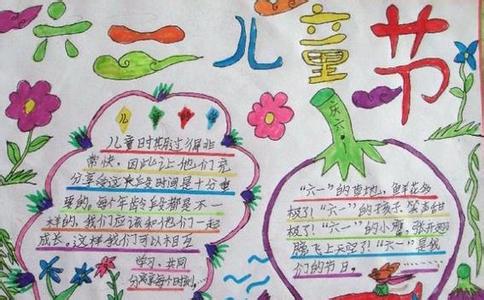 六一儿童节
儿童时期过得非
常快,因此让他们充
分享受这段时间是十分重
要的,每个年龄段都是不一
样的,我们应该和他们一起
成长。这样我们可以相互
学习、共同
分享每个时刻
庆六一
"六一"的草地,鲜花多
极了!"六一"的孩子,笑声甜
极了!"六一"的小鹰,张开翅
膀飞上天啦!"六一"是我
们的节日。